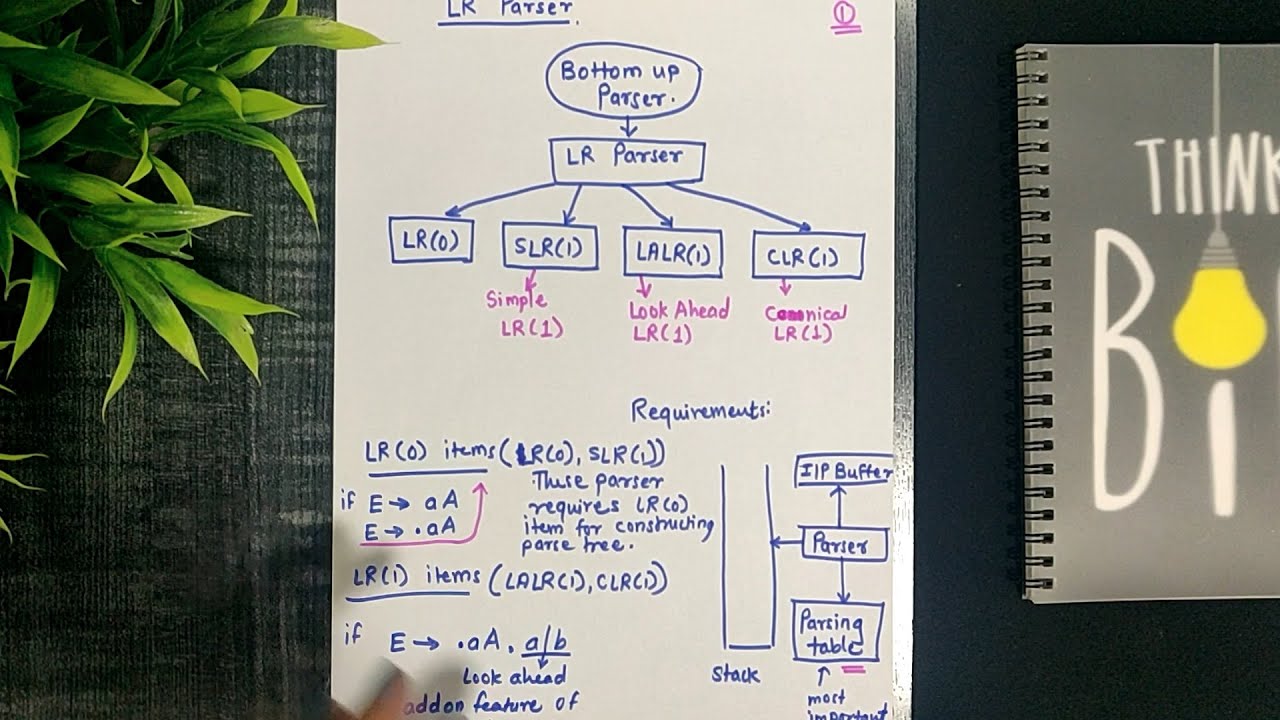 LR Parser.
①
Bottom up
Parser.
LR Parser
LR(0)
SLR(1)
LALR(1)
CLR(1)
Simple
LR(1)
Look Ahead
LR(1)
Canonical
LR(1)
Requirements:
LR(0) items (LR(0), SLR(1))
if E → aA
E → .aA
These parser
requires LR(0)
item for constructing
parse tree.
LR(1) items (LALR(1), CLR(1))
if E → .aA, a/b
Look ahead
addon feature of
Stack
I/P Buffer
Parser
Parsing
table
most
important
THINK
BI